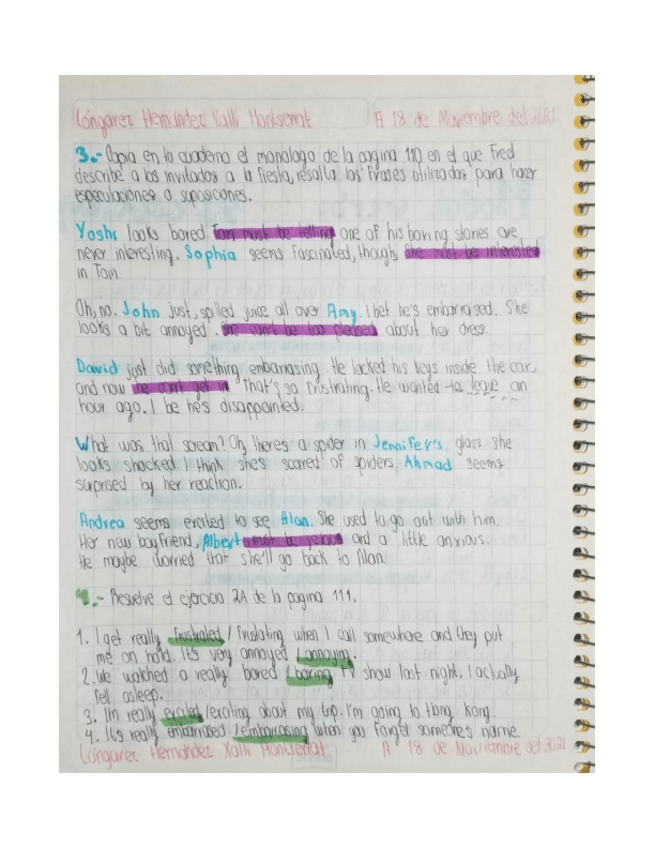 Lóngarez Hernández Xalli Montserrat A 18 de Noviembre del 2021.
3.- Copia en tu cuaderno el monologo de la pagina 110 en el que Fred
describe a los invitados a la fiesta, resalta las frases utilizadas para hacer
especulaciones o suposiciones.
Yoshi looks bored. Tom must be telling one of his boring stories are
never interesting. Sophia seems fascinated, though, she must be interested
in Tom.
Oh, no. John just spilled juice all over Amy. I bet he's embarrased. She
looks a bit annoyed. She can't be too pleased about her dress.
David just did something embarrasing. He locked his keys inside the car,
and now he can't get in that's so frustrating. He wanted to leave an
hour ago. I be he's disappointed.
What was that scream? Oh, there's a spider in Jennifer's glass she
looks shocked I think she's scared of spiders, Ahmad seems
surprised by her reaction.
Andrea seems exated to see Alan. She used to go out with him.
Her new boyfriend, Albert must be jelous and a little anxious.
He maybe worried that she'll go back to Alan.
4.- Resuelve el ejercicio 2A de la pagina 111.
1. I get really frustrated / frustating when I call somewhere and they put
me on hold. It's very annoyed / annoying.
2. We watched a really bored / boring TV show last night. I actually
fell asleep.
3. I'm really exated /exating about my trip. I'm going to Hong Kong.
4. It's really embarrased /embarrasing when you forget someone's name
Lóngarez Hernández Xalli Montserrat A 18 de Noviembre del 2021